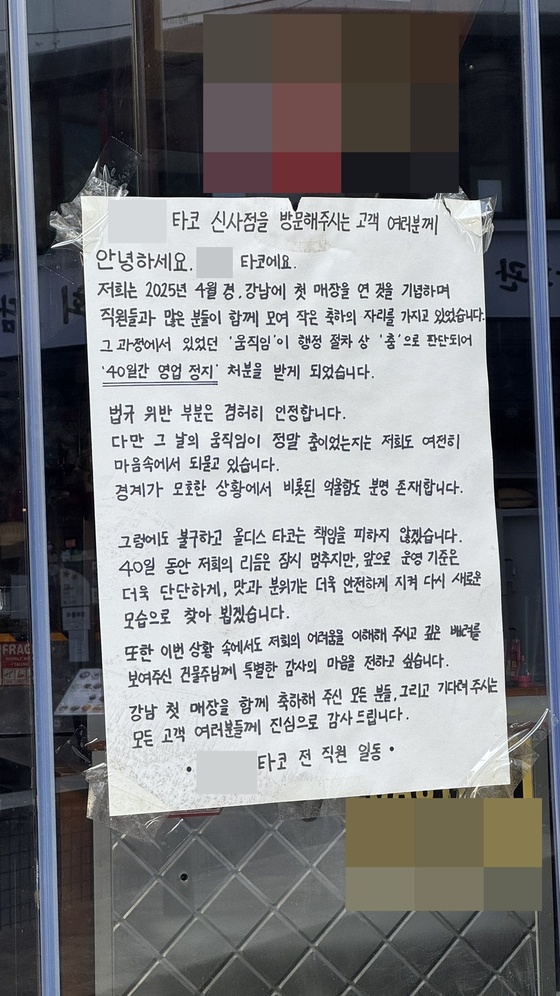 타코 신사점을 방문해주시는 고객 여러분께
안녕하세요. 타코에요.
저희는 2025년 4월 경, 강남에 첫 매장을 연 것을 기념하며
직원들과 많은 분들이 함께 모여 작은 축하의 자리를 가지고 있었습니다.
그 과정에서 있었던 '움직임'이 행정 절차 상 '춤'으로 판단되어
'40일간 영업 정지' 처분을 받게 되었습니다.
법규 위반 부분은 겸허히 인정합니다.
다만 그 날의 움직임이 정말 춤이었는지는 저희도 여전히
마음속에서 되묻고 있습니다.
경계가 모호한 상황에서 비롯된 억울함도 분명 존재합니다.
그럼에도 불구하고 올디스 타코는 책임을 피하지 않겠습니다.
40일 동안 저희의 리듬은 잠시 멈추지만, 앞으로 운영 기준은
더욱 단단하게, 맛과 분위기는 더욱 안전하게 지켜 다시 새로운
모습으로 찾아 뵙겠습니다.
또한 이번 상황 속에서도 저희의 어려움을 이해해 주시고 깊은 배려를
보여주신 건물주님께 특별한 감사의 마음을 전하고 싶습니다.
강남 첫 매장을 함께 축하해 주신 모든 분들, 그리고 기다려 주시는
모든 고객 여러분들께 진심으로 감사 드립니다.
• 타코 전 직원 일동 •